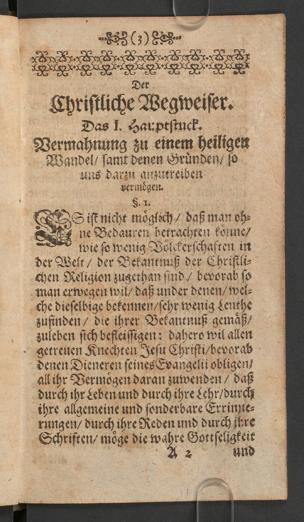 (3)
Der
Christliche Wegweiser.
Das I. Hauptstuck.
Vermahnung zu einem heiligen
Wandel / samt denen Gründen / so
uns darzu anzutreiben
vermögen.
§. 1.
ES ist nicht möglich / daß man oh-
ne Bedauren betrachten könne /
wie so wenig Völckerschaften in
der Welt / der Bekantnuß der Christli-
chen Religion zugethan sind / bevorab so
man erwegen wil / daß under denen / wel-
che dieselbige bekennen / sehr wenig Leuthe
zufinden / die ihrer Bekantnuß gemäß /
zuleben sich befleissigen: dahero wil allen
getreuen Knechten Jesu Christi / bevorab
denen Dieneren seines Evangelii obligen /
all ihr Vermögen daran zuwenden / daß
durch ihr Leben und durch ihre Lehr / durch
ihre allgemeine und sonderbare Errinne-
rungen / durch ihre Reden und durch ihre
Schriften / möge die wahre Gottseligkeit
A 2 und